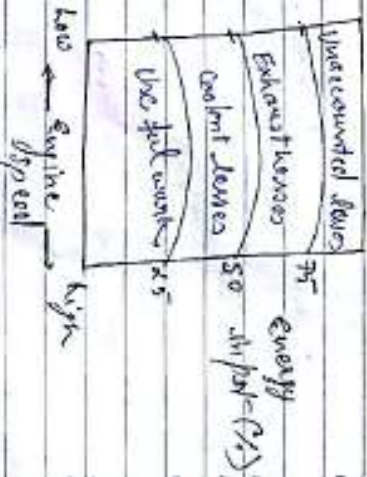 Unaccounted losses
Exhaust losses
75
Coolant losses
50
Useful work
25
Energy
input (%)
low ← Engine → high
speed